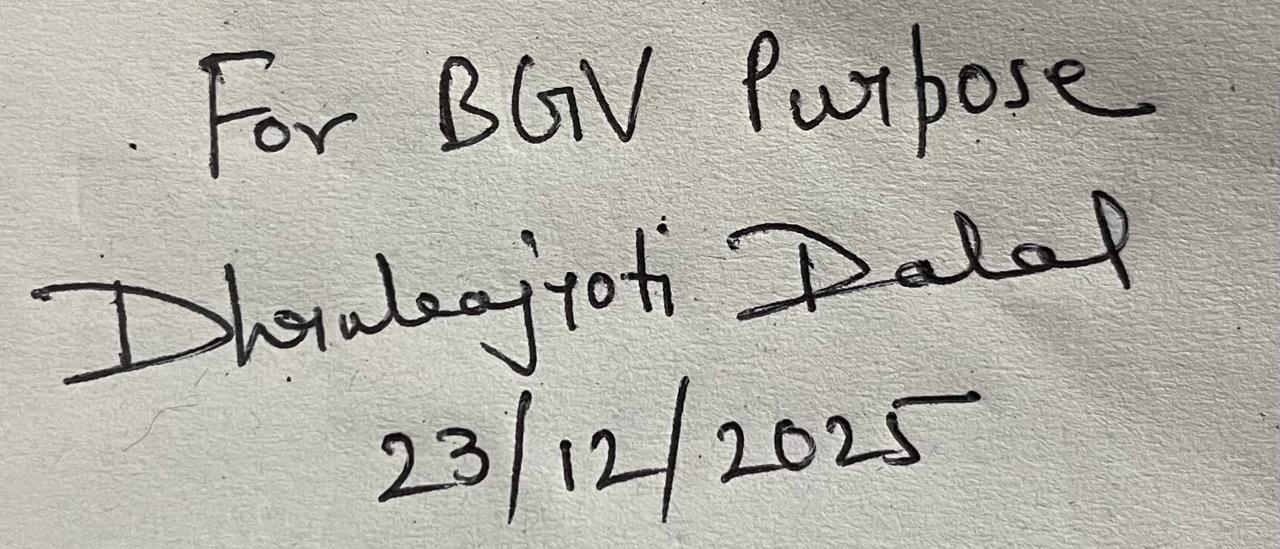 For BGV Purpose
Dhrubajyoti Dalal
23/12/2025